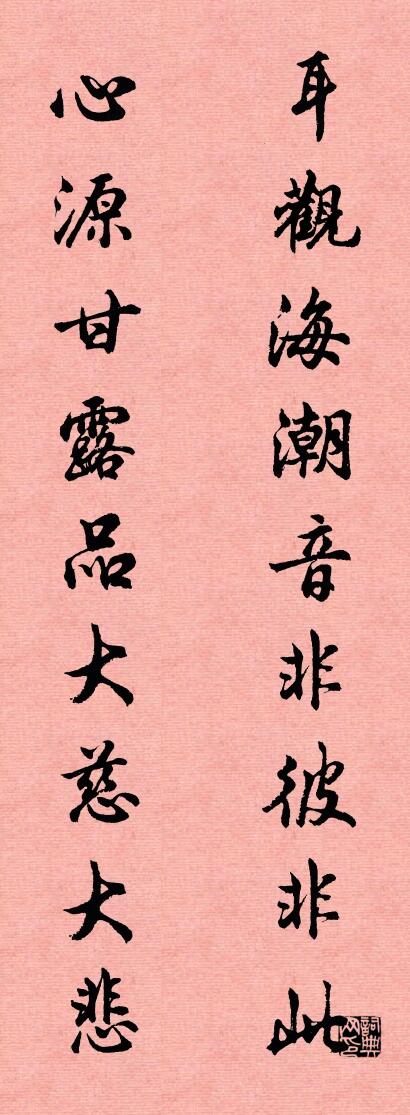 耳觀海潮音非彼非此
心源甘露品大慈大悲